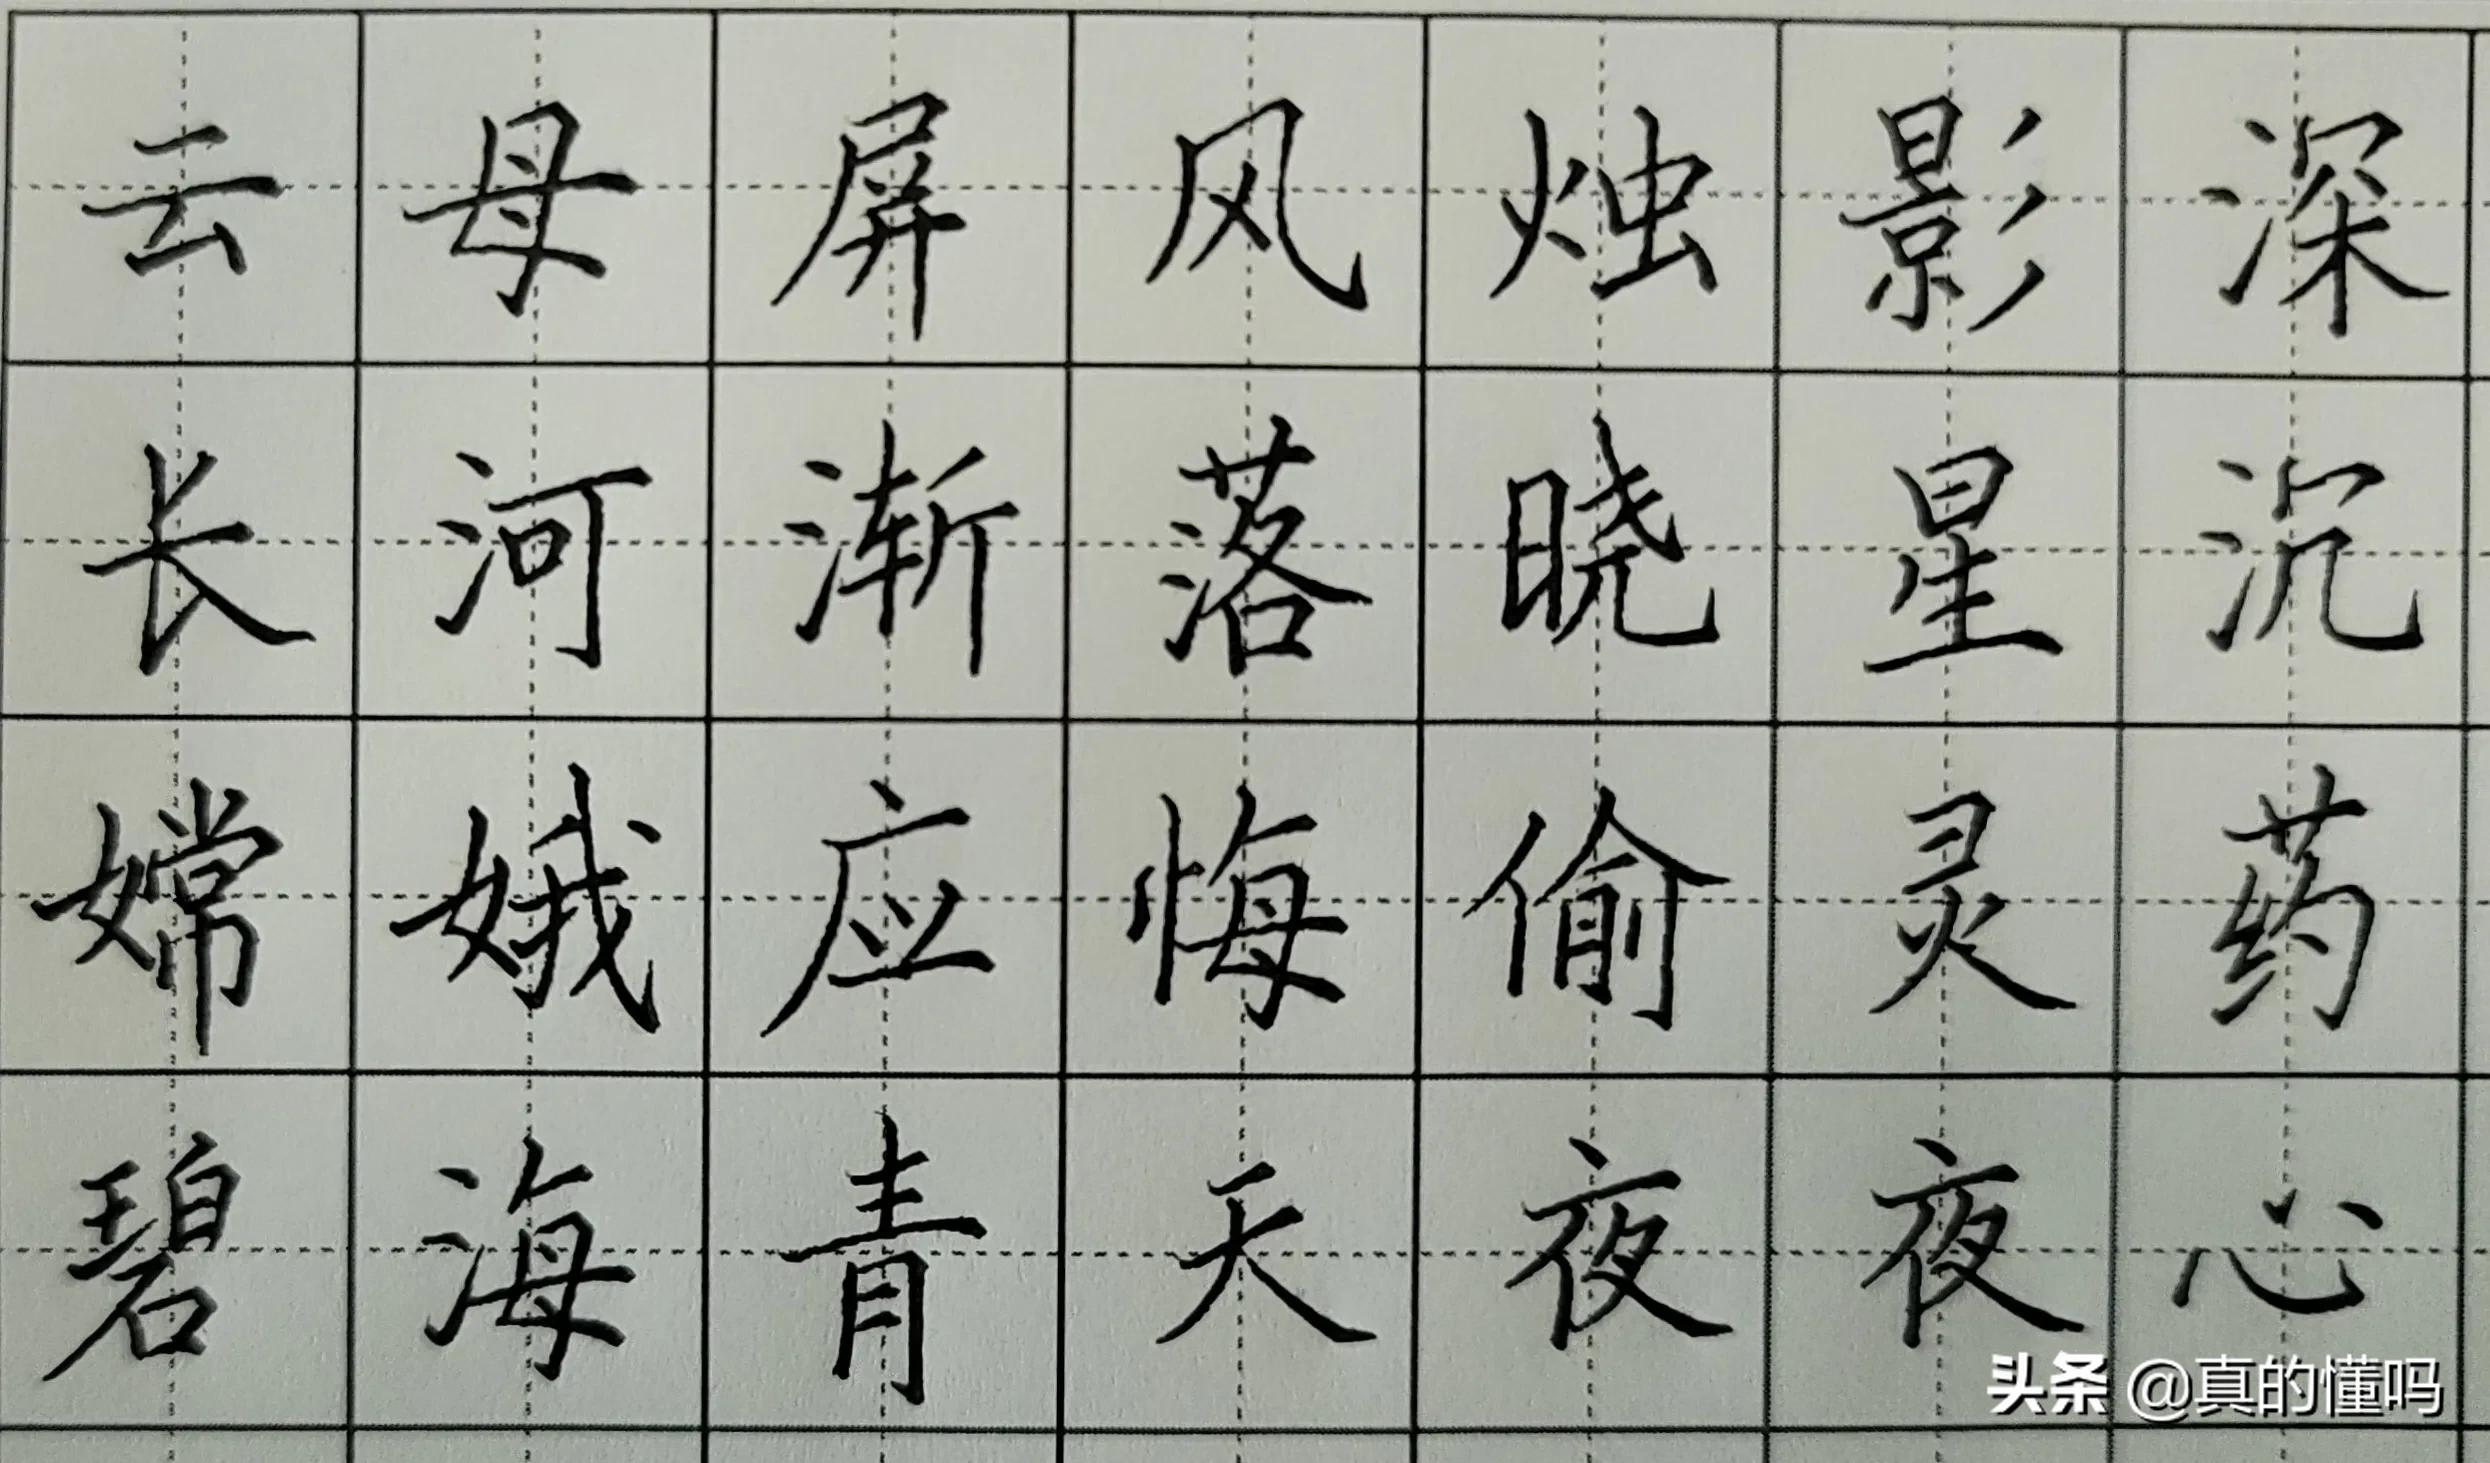 云母屏风烛影深
长河渐落晓星沉
嫦娥应悔偷灵药
碧海青天夜夜心
头条 @真的懂吗